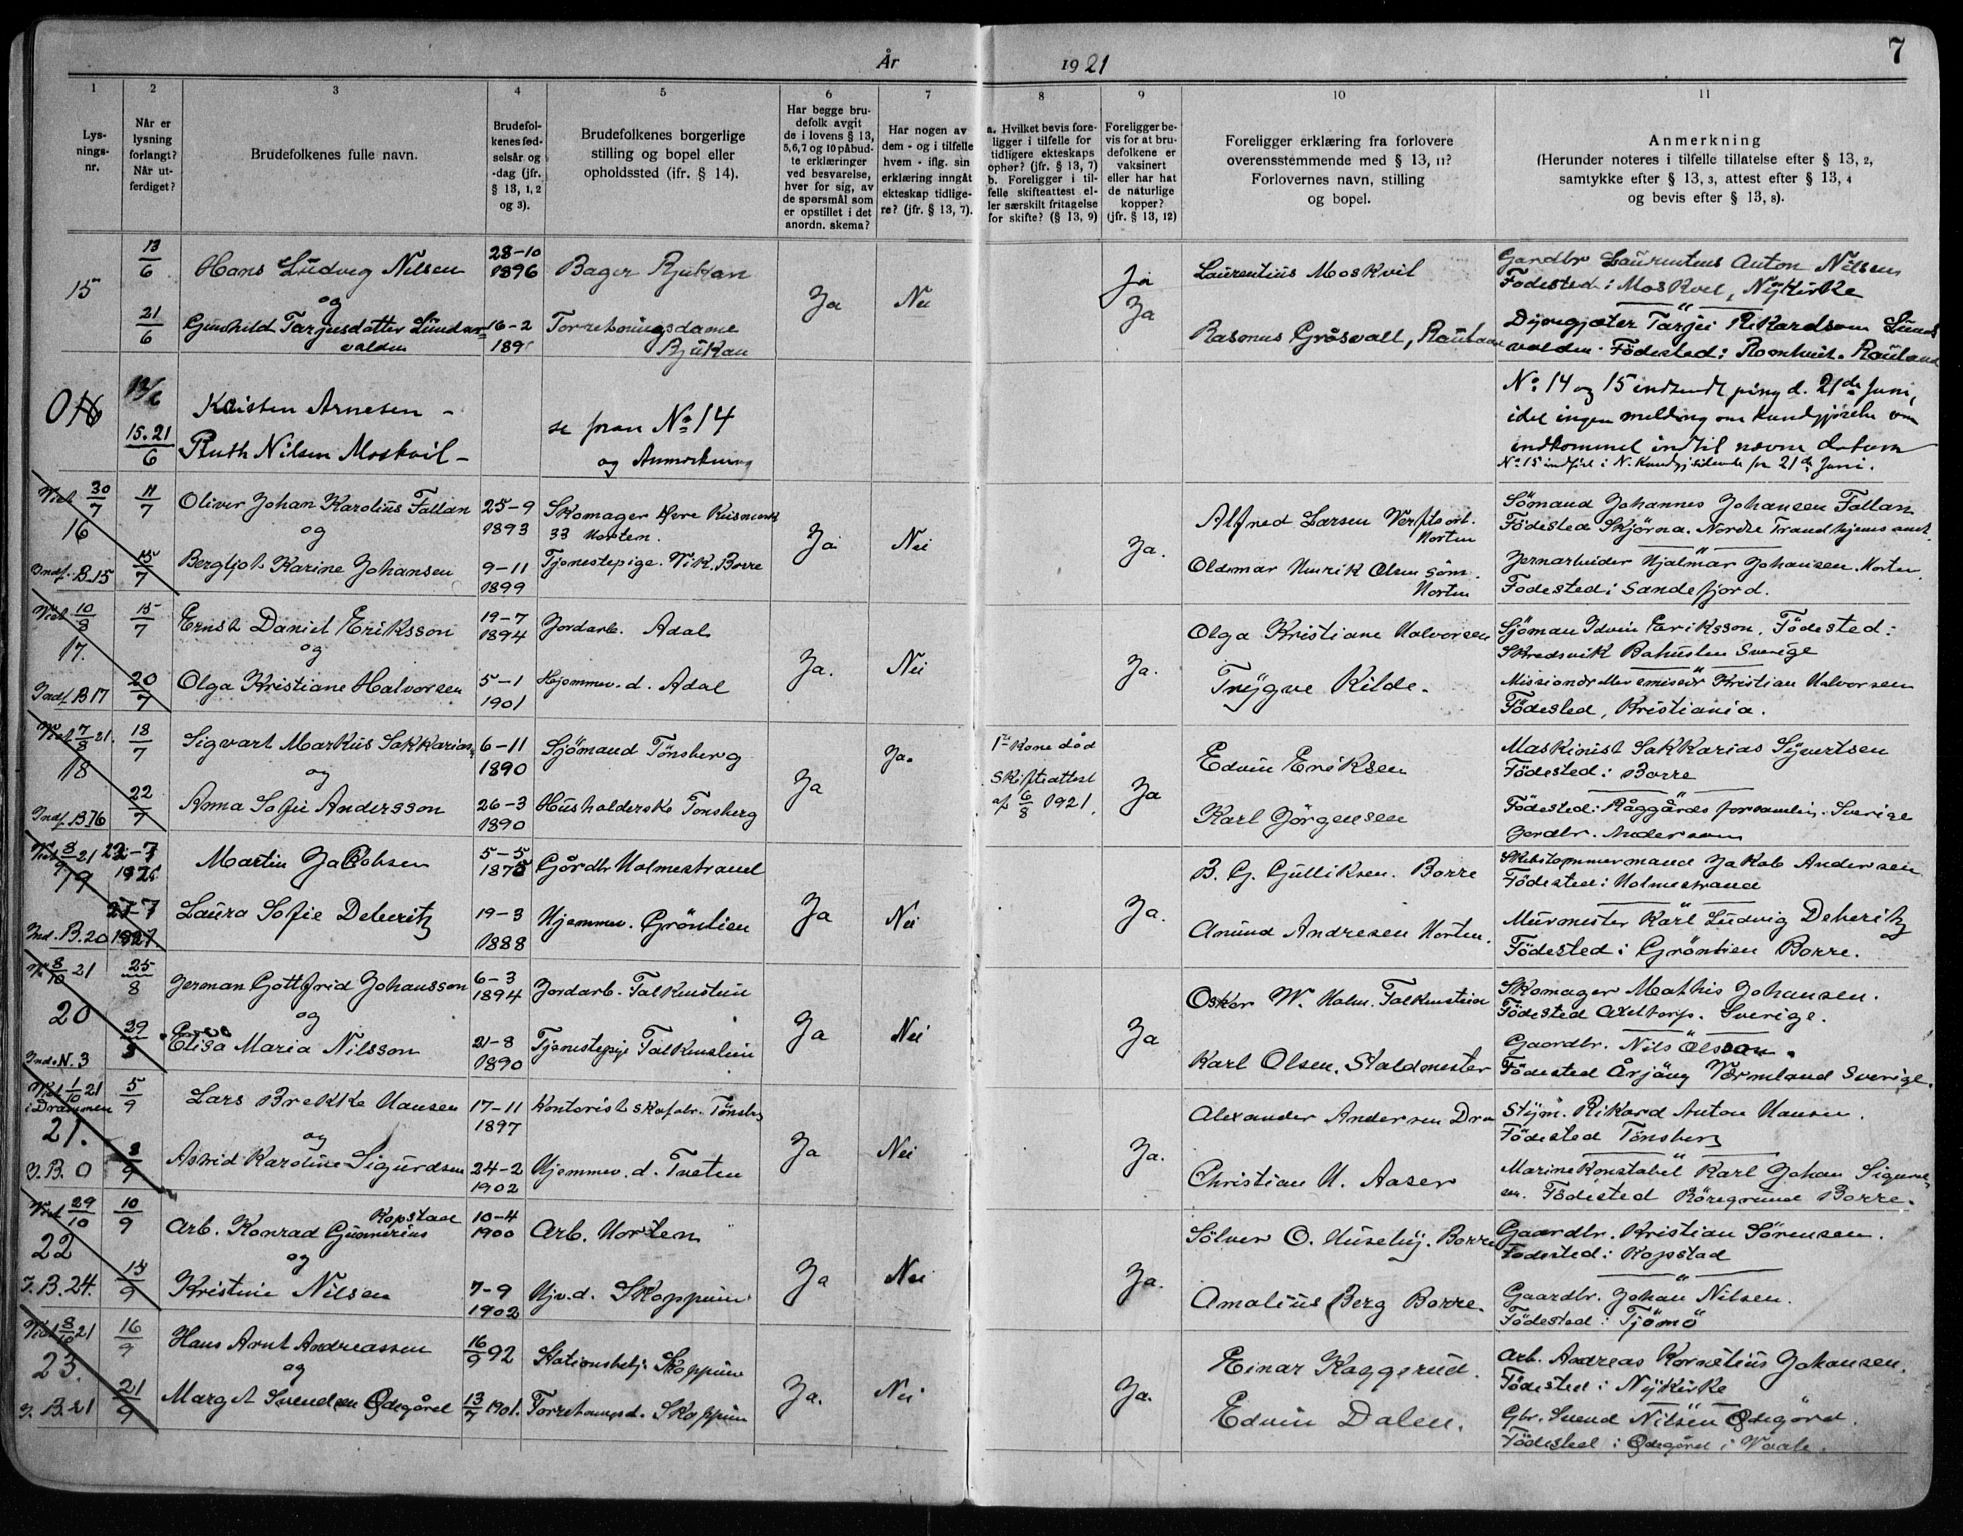 År 1921
7
1 2 3 4 5 6 7 8 9 10 11
Lys-
nings-
nr.
Når er
lysning
forlangt?
Når ut-
ferdiget?
Brudefolkenes fulle navn.
Brudefol-
kenes fød-
selsår og
-dag (jfr.
§ 13, 1, 2
og 3).
Brudefolkenes borgerlige
stilling og bopel eller
opholdssted (ifr. § 14).
Har begge bru-
defolk avgit
de i lovens § 13,
5,6,7 og 10 påbud-
te erklæringer
ved besvarelse,
hver for sig, av
de spørsmål som
er opstillet i det
anordn. skema?
Har nogen av
dem - og i tilfelle
hvem - iflg. sin
erklæring inngåt
ekteskap tidlige-
re? (jfr. § 13, 7).
a. Hvilket bevis fore-
ligger i tilfelle for
tidligere ekteskaps
ophør? (jfr. § 13, 7)
b. Foreligger i til-
felle skifteattest el-
ler særskilt fritagelse
for skifte? (§ 13, 9)
Foreligger be-
vis for at bru-
defolkene er
vaksinert
eller har hat
de naturlige
kopper?
(jfr. § 13, 12)
Foreligger erklæring fra forlovere
overensstemmende med § 13, 11?
Forlovernes navn, stilling
og bopel.
Anmerkning
(Herunder noteres i tilfelle tillatelse efter § 13, 2,
samtykke efter § 13, 3, attest efter § 13, 4
og bevis efter § 13, 8).
15
13/6 Hans Ludvig Nilsen 28-10 1896 Bager Rjukan
og
21/6 Gunhild Tarjusdatter Lundar=
valden 16-2 Forretningsdame
Rjukan
Ja Nei Ja Ja
Laurentius Moskvil
Rasmus Grösvall, Rauland
Gardbr Laurentius Anton Nilsen
Födested: Moskvel, Nykirke
Tarjei Rikardson
Födested: Rauland
016
13/6 Kristen Arnesen -
15.21/6 Ruth Nilsen Moskvil -
se foran No 14
og Anmerkning
No 14 og 15 indsendt d. 21de Juni,
idet ingen melding om kundgjörelse var
indkommet indtil nævnte datum
No 15 indført i N. Kundgj.tidende for 21de Juni.
Viet 30/7
16
Indf. B 15
11/7 Oliver Johan Karolius Fallan 25-9 1893 Skomager
33 Horten.
og
15/7 Bergljot Karine Johansen 9-11 1899 Tjenestepige. Vik. Borre
Ja Nei Ja.
Alfred Larsen Verftsarb.
Horten
Oldemar Henrik Olsen Söm.
Horten
Sömand Johannes Johansen Fallan
Födested Skjörna. Nordre Trondhjems amt.
Jernarbeider Hjalmar Johansen. Horten
Födested i Sandefjord.
Viet 10/8
17.
Indf. B 17
15/7 Ernst Daniel Eriksson 19-7 1894 Jordarb. Adal
og
20/7 Olga Kristiane Halvorsen 5-1 1901 Hjemmev. d. Adal
Ja. Nei Ja.
Olga Kristiane Halvorsen
Trygve Kilde.
Sjöman Edvin Eriksson. Födested:
Skredsvik Bahuslen Sverige
Kristian Halvorsen
Födested, Kristiania.
Viet 7/8-21.
18
Indf. B.76
18/7 Sigvart Markus Sakkarias 6-11 1890 Sjömand Tönsberg
og
22/7 Anna Sofie Andersson 26-3 1890 Husholderske Tönsberg
Ja Ja.
1te Kone död
Skifteattest
af 6/8 1921.
Ja
Edvin Eriksen
Karl Jörgensen
Maskinist Sakkarias Syvertsen
Födested: Borre
Födested: Råggårds forsamlin. Sverige
Jordbr. Anderson
Viet 8/9 21
19
Ind. B. 20
22-7 1921 Martin Jakobsen 5-5 1875 Gårdbr Holmestrand
27-7 1921 Laura Sofie Deberitz 19-3 1888 Hjemmev. Gröntien
Ja Nei Ja.
B. G. Gulliksen. Borre
Amund Andresen Horten.
Skibstømmermand Jakob Andersen
Födested: Holmestrand
Murmester Karl Ludvig Deberitz
Födested i Gröntien Borre.
V. 8/10 21
20
Ind. N. 3
25/8 Jerman Gottfrid Johansson 6-3 1894 Jordarb. Falkenstein
og
29/8 Elisa Maria Nilsson 21-8 1890 Tjenestepige Falkenstein
Ja Nei Ja
Oskar W. Holm. Falkenstein
Karl Olsen. Staldmester
Skomager Mathis Johansen.
Födested Axeltorp. Sverige.
Gaardbr. Nils Olsson.
Födested Årjäng Værmland Sverige.
Viet 1/10 21
i Drammen
21.
I. B. 0
5/9 Lars Brekke Hansen 17-11 1897 Kontorist Tönsb.
og
8/9 Astrid Karoline Sigurdsen 24-2 1902 Hjemmev. d. Tveten
Ja Nei Ja.
Alexander Andersen Dra
Christian H. Aaser
Styrm. Rikard Anton Hansen.
Födested Tönsberg
Marinekonstabel Karl Johan Sigurd-
sen. Födested Böregrund Borre.
Viet 29/10
22
I. B. 24.
10/9 Arb. Konrad Gunnerius Kopstad 10-4 1900 Arb. Horten
og
14/9 Kristine Nilsen 7-9 1902 Hjv. d. Skoppum
Ja Nei Ja.
Sölver O. Huseby. Borre
Amalius Berg Borre.
Gaardbr. Kristian Sörensen.
Födested: Kopstad
Gaardbr. Johan Nilsen.
Födested: Tjömö
Viet 8/10 21
23.
I. B. 21
16/9 Hans Arnt Andreassen 16/9 92 Stationsbetj. Skoppum
og
21/9 Margit Svendsen Ødegård 13/7 1901. Forretningsd. Skoppum
Ja. Nei Ja.
Einar Kaggerud.
Edvin Dalen.
Arb. Andreas Kornelius Johansen.
Födested i Nykirke
Gbr. Svend Nilsen Ødegård.
Födested i Ødegård i Vaale.